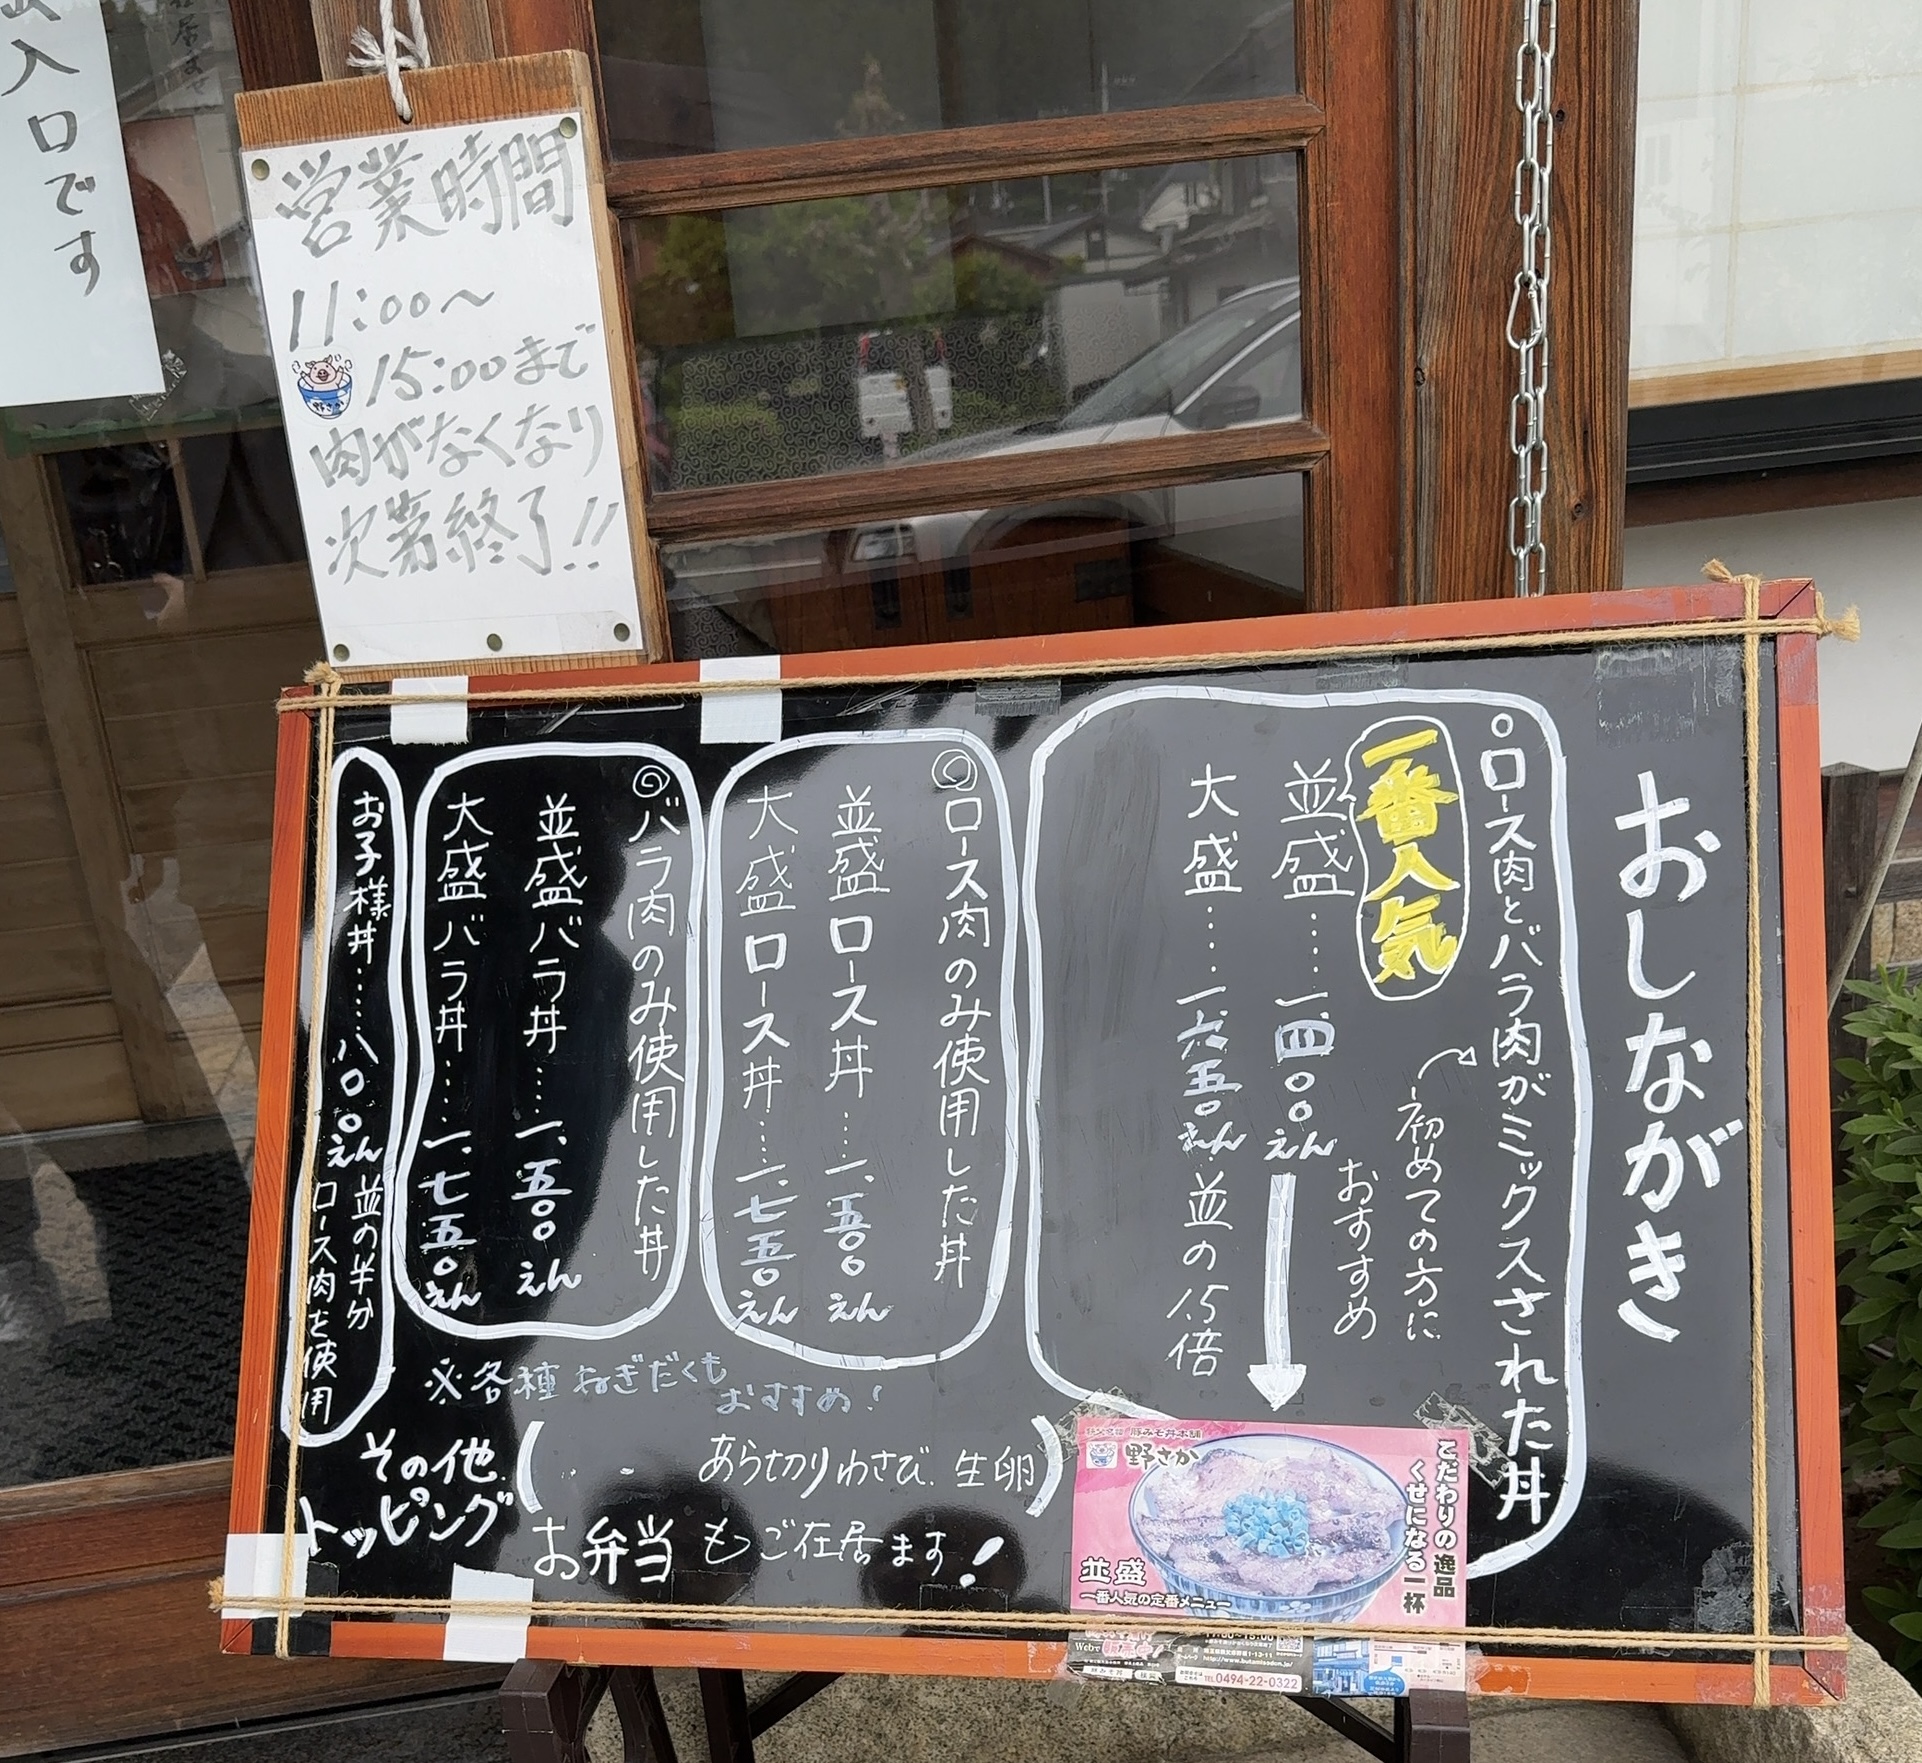 入口です
営業時間
11:00〜
15:00まで
野さか
肉がなくなり
次第終了!!
おしながき
○ロース肉とバラ肉がミックスされた丼
初めての方に
おすすめ
一番人気
並盛……一、四〇〇えん
大盛……一、六五〇えん 並の1.5倍
◎ロース肉のみ使用した丼
並盛ロース丼……一、五〇〇えん
大盛ロース丼……一、七五〇えん
◎バラ肉のみ使用した丼
並盛バラ丼……一、五〇〇えん
大盛バラ丼……一、七五〇えん
お子様丼……八〇〇えん
並の半分
ロース肉を使用
※各種ねぎだくも
おすすめ!
その他
トッピング
(あらせ切りわさび、生卵)
お弁当もご在居ます!
豚みそ丼本舗
野さか
こだわりの逸品
くせになる一杯
並盛
一番人気の定番メニュー
http://www.butamisodon.jp/
TEL 0494-22-0322